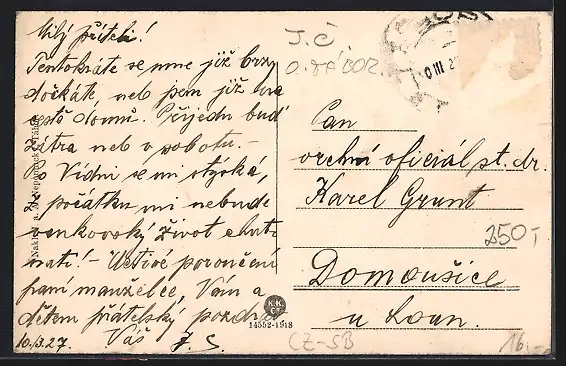 Milý příteli!
Tentokráte se mne již brzy
dočkáte, neb jsem již na
cestě domů. Přijedu buď
zítra neb v sobotu. –
Po Vídni se mi stýská,
z počátku mi nebude
venkovský život chut-
nati! – Uctivé poručení
paní manželce, Vám a
dětem přátelský pozdrav
Váš F. S.
10./3.27.
J.Č
O. TÁBOR.
0 III 2
Pan
vrchní oficiál st. dr.
Karel Grunt
250,-
Domoušice
u Loun.
K.K.
14552-1918
CZ-SB
16